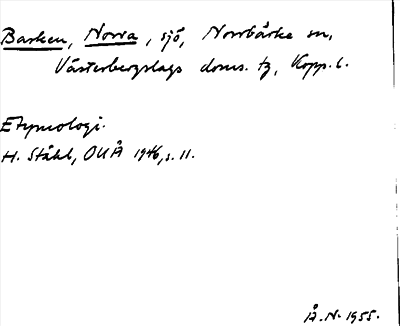 Barken, Norra, sjö, Norrbärke sn,
Västerbergslags doms. tg, Kopp. l.
Etymologi.
H. Ståhl, OUÅ 1946, s. 11.
Å.N. 1955.